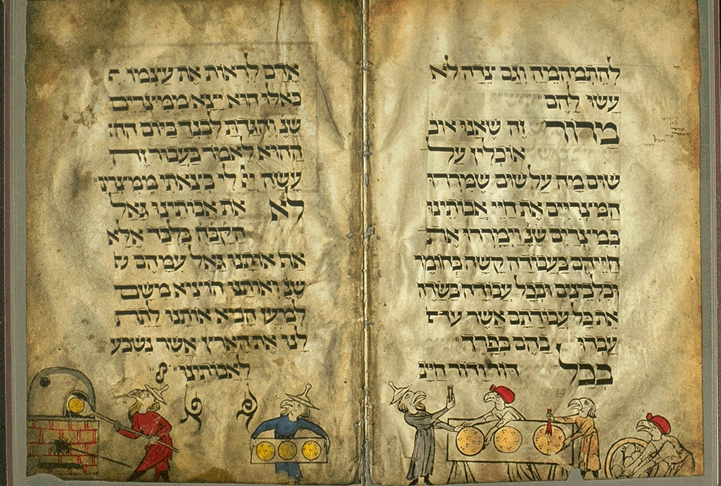 להתמהמה וגם צדה לא
עשו להם
מרור זה שאנו אוכ
אוכלין על
שום מה על שום שמררו
המצריים את חיי אבותינו
במצרים שנ וימררו את
חייהם בעבודה קשה בחומר
ובלבנים ובכל עבודה בשדה
את כל עבודתם אשר ע
עבדו בהם בפרך
בכל דור ודור חייב
אדם לראות את עצמו
כאלו הוא יצא ממצרים
שנ והגדת לבנך ביום הה
ההוא לאמר בעבור זה
עשה לי בצאתי ממצרים
לא את אבותינו גאל
הקבה בלבד אלא
את אותנו גאל עמהם
שנ ואותנו הוציא משם
למען הביא אותנו לתת
לנו את הארץ אשר נשבע
לאבותינו